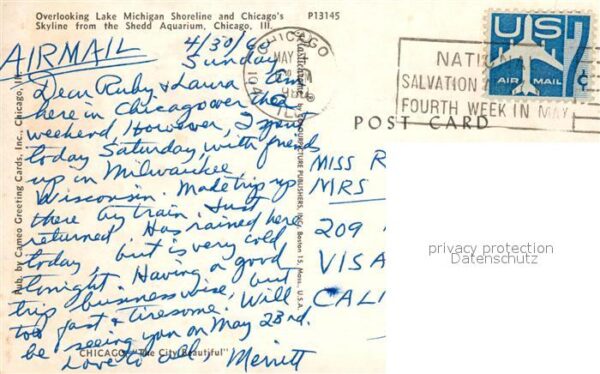 Overlooking Lake Michigan Shoreline and Chicago's
Skyline from the Shedd Aquarium, Chicago, Ill.
P13145
AIRMAIL
4/30/60
Sunday
Dear Ruby & Laura
here in Chicago over the
weekend, However, I spent
today Saturday, with friends
up in Milwaukee
Wisconsin. Made trip up
there by train. Just
returned. Has rained here
today, but is very cold
tonight. Having a good
trip businesswise, but
too fast & tiresome. Will
be seeing you on May 23rd.
Love to all, Merritt
CHICAGO "The City Beautiful"
Pub. by Cameo Greeting Cards, Inc., Chicago, Ill.
PUBLISHERS, INC., Boston 15, Mass., U.S.A.
CHICAGO
MAY
ILL
NATI
SALVATION
FOURTH WEEK IN MAY
US
7¢
AIR MAIL
POST CARD
MISS R
MRS
209
VISA
CALI
privacy protection
Datenschutz